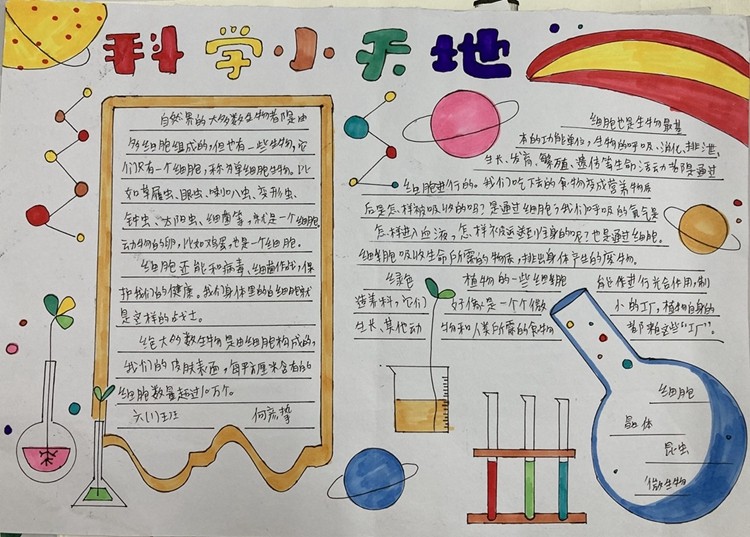 科学小天地
自然界的大多数生物都是由
多细胞组成的,但也有一些生物,它
们只有一个细胞,称为单细胞生物。比
如草履虫、眼虫、喇叭虫、变形虫、
钟虫、太阳虫、细菌等,就是一个细胞。
动物的卵,比如鸡蛋,也是一个细胞。
细胞还能和病毒、细菌作战,保
护我们的健康。我们身体里的白细胞就
是这样的战士。
绝大多数生物是由细胞构成的,
我们的皮肤表面,每平方厘米含有的
细胞数量超过10万个。
六(1)班
细胞也是生物最基
本的功能单位,生物的呼吸、消化、排泄、
生长、发育、繁殖、遗传等生命活动都是通过
细胞进行的。我们吃下去的食物变成营养物质
后是怎样被吸收的呢?是通过细胞;我们呼吸的氧气是
怎样进入血液,怎样被运送到全身的呢?也是通过细胞。
细胞吸收生命所需的物质,排出身体产生的废物。
绿色 植物的一些细胞 能进行光合作用,制
造养料,它们 好像是一个个微 小的工厂,植物自身的
生长、其他动 物和人类所需的食物 都来自这些“工厂”。
细胞
晶体
昆虫
微生物